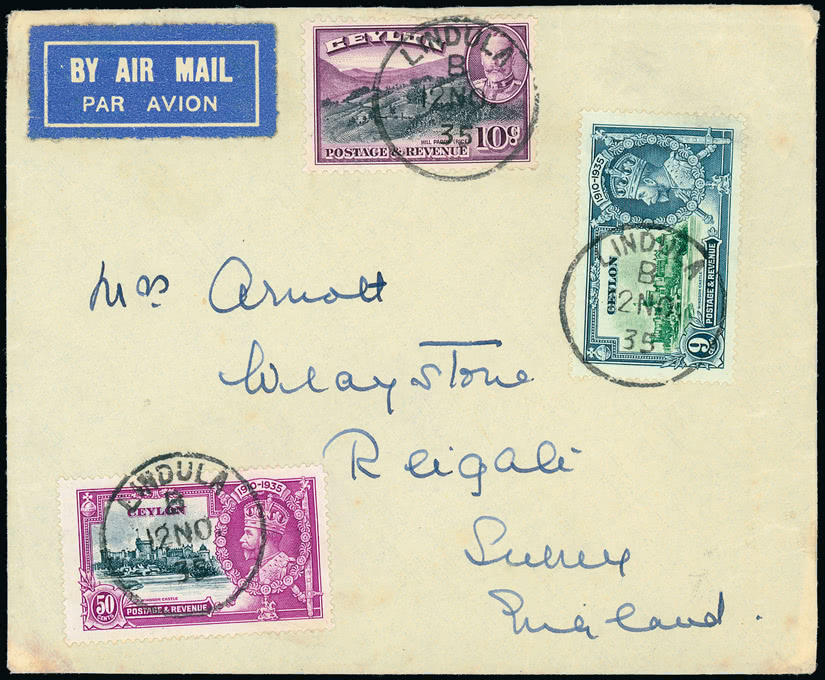 BY AIR MAIL
PAR AVION
CEYLON
HILL PADDY (RICE)
POSTAGE & REVENUE 10c
LINDULA
B
12 NO
35
1910-1935
CEYLON
WINDSOR CASTLE
POSTAGE & REVENUE
9
CENTS
LINDULA
B
12 NO
35
Mrs Arnott
Wraystone
Reigate
Surrey
England.
LINDULA
B
12 NO
35
CEYLON
1910-1935
WINDSOR CASTLE
50
CENTS
POSTAGE & REVENUE